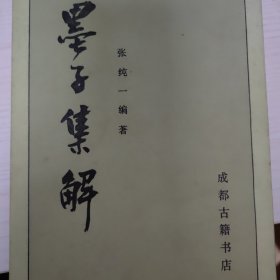 墨子集解
张纯一编著
成都古籍书店